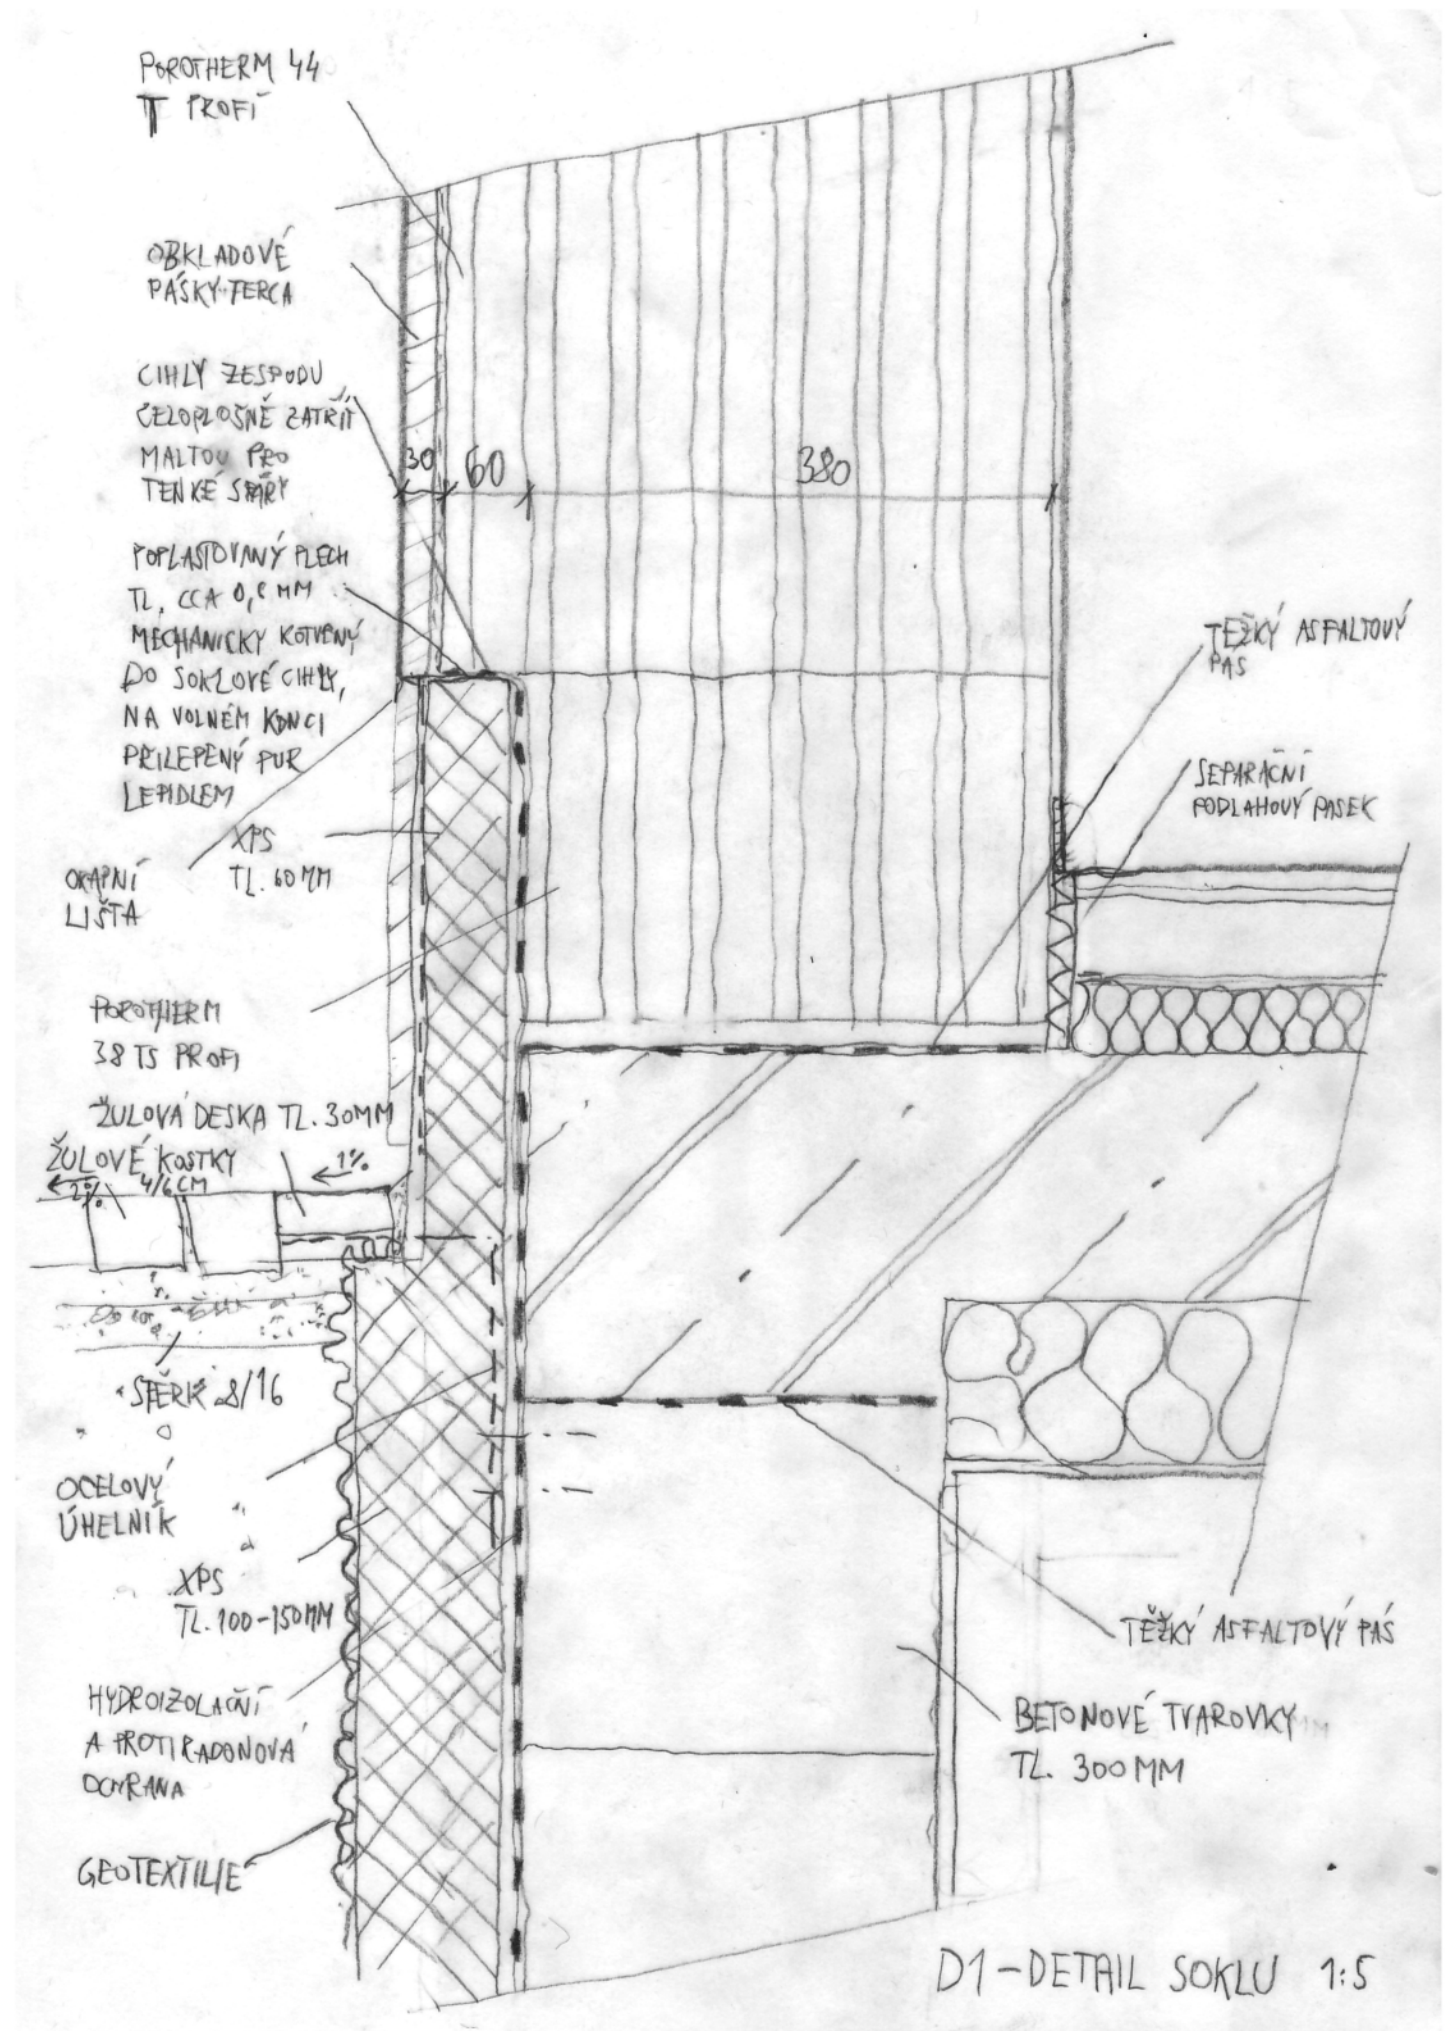 POROTHERM 44
T PROFI
OBKLADOVÉ
PÁSKY TERCA
CIHLY ZESPODU
CELOPLOŠNĚ ZATŘÍT
MALTOU PRO
TENKÉ SPÁRY
30
60
380
POPLASTOVANÝ PLECH
TL. CCA 0,8 MM
MECHANICKY KOTVENÝ
DO SOKLOVÉ CIHLY,
NA VOLNÉM KONCI
PŘILEPENÝ PUR
LEPIDLEM
TĚŽKÝ ASFALTOVÝ
PAS
SEPARAČNÍ
PODLAHOVÝ PASEK
XPS
TL. 60 MM
OKAPNÍ
LIŠTA
POROTHERM
38 TS PROFI
ŽULOVÁ DESKA TL. 30MM
ŽULOVÉ KOSTKY
4/6 CM
2%
1%
ŠTĚRK 8/16
OCELOVÝ
ÚHELNÍK
XPS
TL. 100-150MM
HYDROIZOLAČNÍ
A PROTIRADONOVÁ
OCHRANA
GEOTEXTILIE
TĚŽKÝ ASFALTOVÝ PÁS
BETONOVÉ TVAROVKY
TL. 300MM
D1-DETAIL SOKLU 1:5